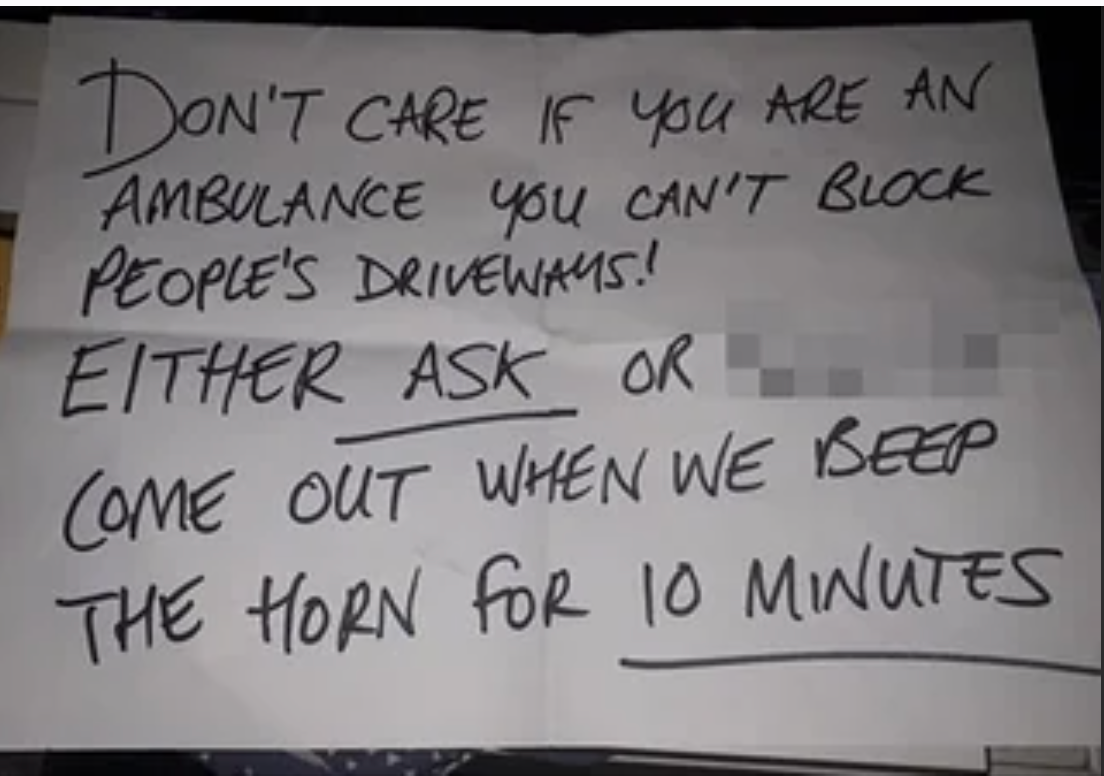 DON'T CARE IF YOU ARE AN
AMBULANCE YOU CAN'T BLOCK
PEOPLE'S DRIVEWAYS!
EITHER ASK OR
COME OUT WHEN WE BEEP
THE HORN FOR 10 MINUTES